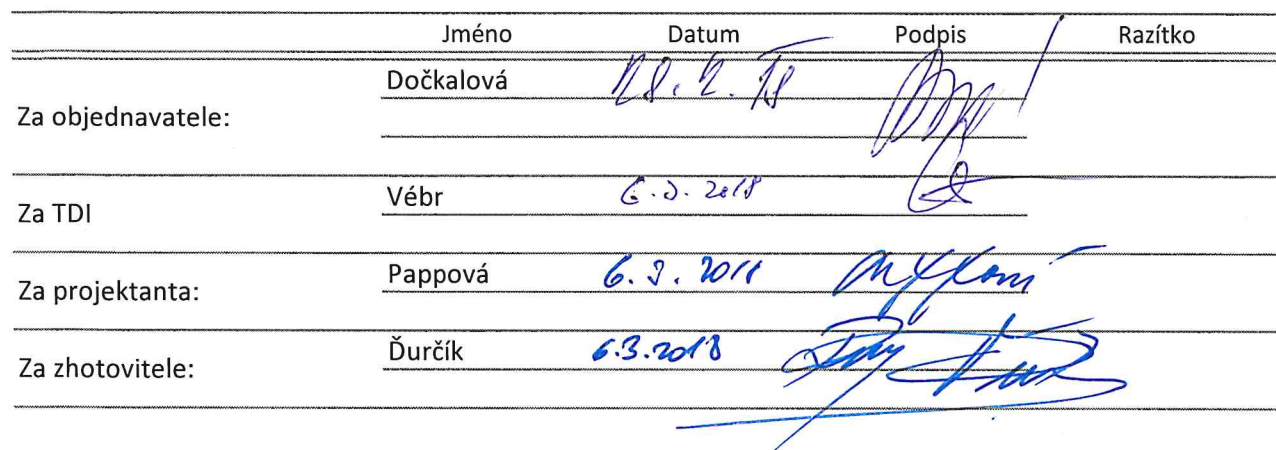 Jméno Datum Podpis Razítko
Za objednavatele: Dočkalová
Za TDI Vébr 6.3.2018
Za projektanta: Pappová 6.3.2018
Za zhotovitele: Ďurčík 6.3.2018